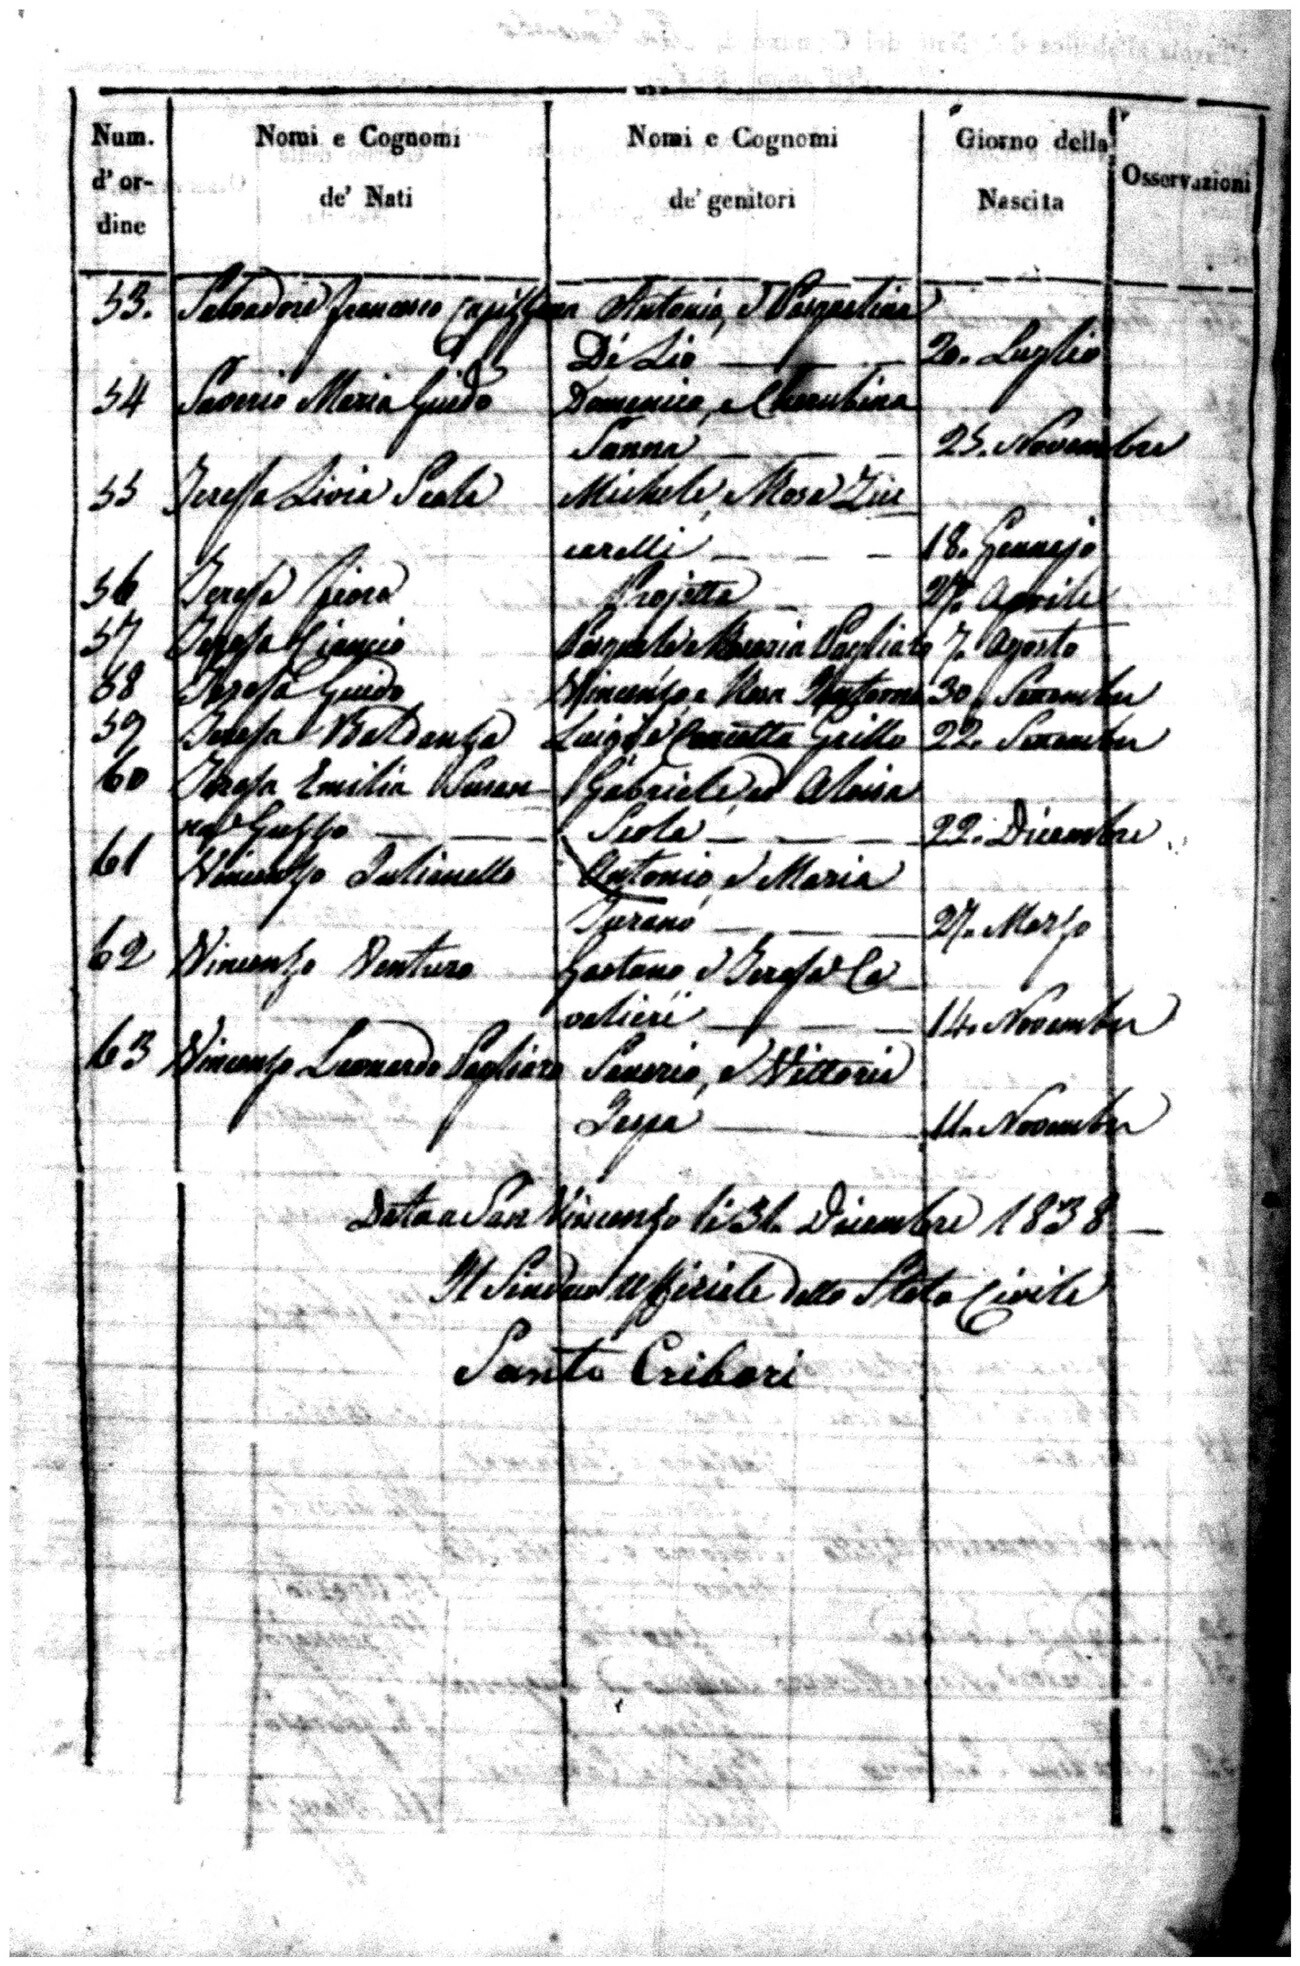 Num. d'ordine
Nomi e Cognomi de' Nati
Nomi e Cognomi de' genitori
Giorno della Nascita
Osservazioni
53. Salvadore Francesco Antonio, e Pasqualina
De Lio 20. Luglio
54 Saverio Maria Guido Domenico, e Cherubina
Sanna 25. Novembre
55 Teresa Livia Scola Michele, e Rosa Zic
carelli 18. Gennajo
56 Teresa Fiora Projetta 27. Aprile
57 Teresa Ciancio Pasquale e Pagliaro 7. Agosto
58 Teresa Guido Vincenzo e Rosa 30. Settembre
59 Teresa Baldanza Luigi e Concetta Grillo 22. Settembre
60 Teresa Emilia Susan Gabriele, ed Aloisa
na Scola 22. Dicembre
61 Vincenzo Julianello Antonio, e Maria
Turano 27. Marzo
62 Vincenzo Ventura Gaetano e Teresa Ca
valieri 14. Novembre
63 Vincenzo Leonardo Pagliaro Saverio, e Vittoria
11. Novembre
Data a San Vincenzo li 31. Dicembre 1838
Il Sindaco Uffiziale dello Stato Civile
Santo Cribari